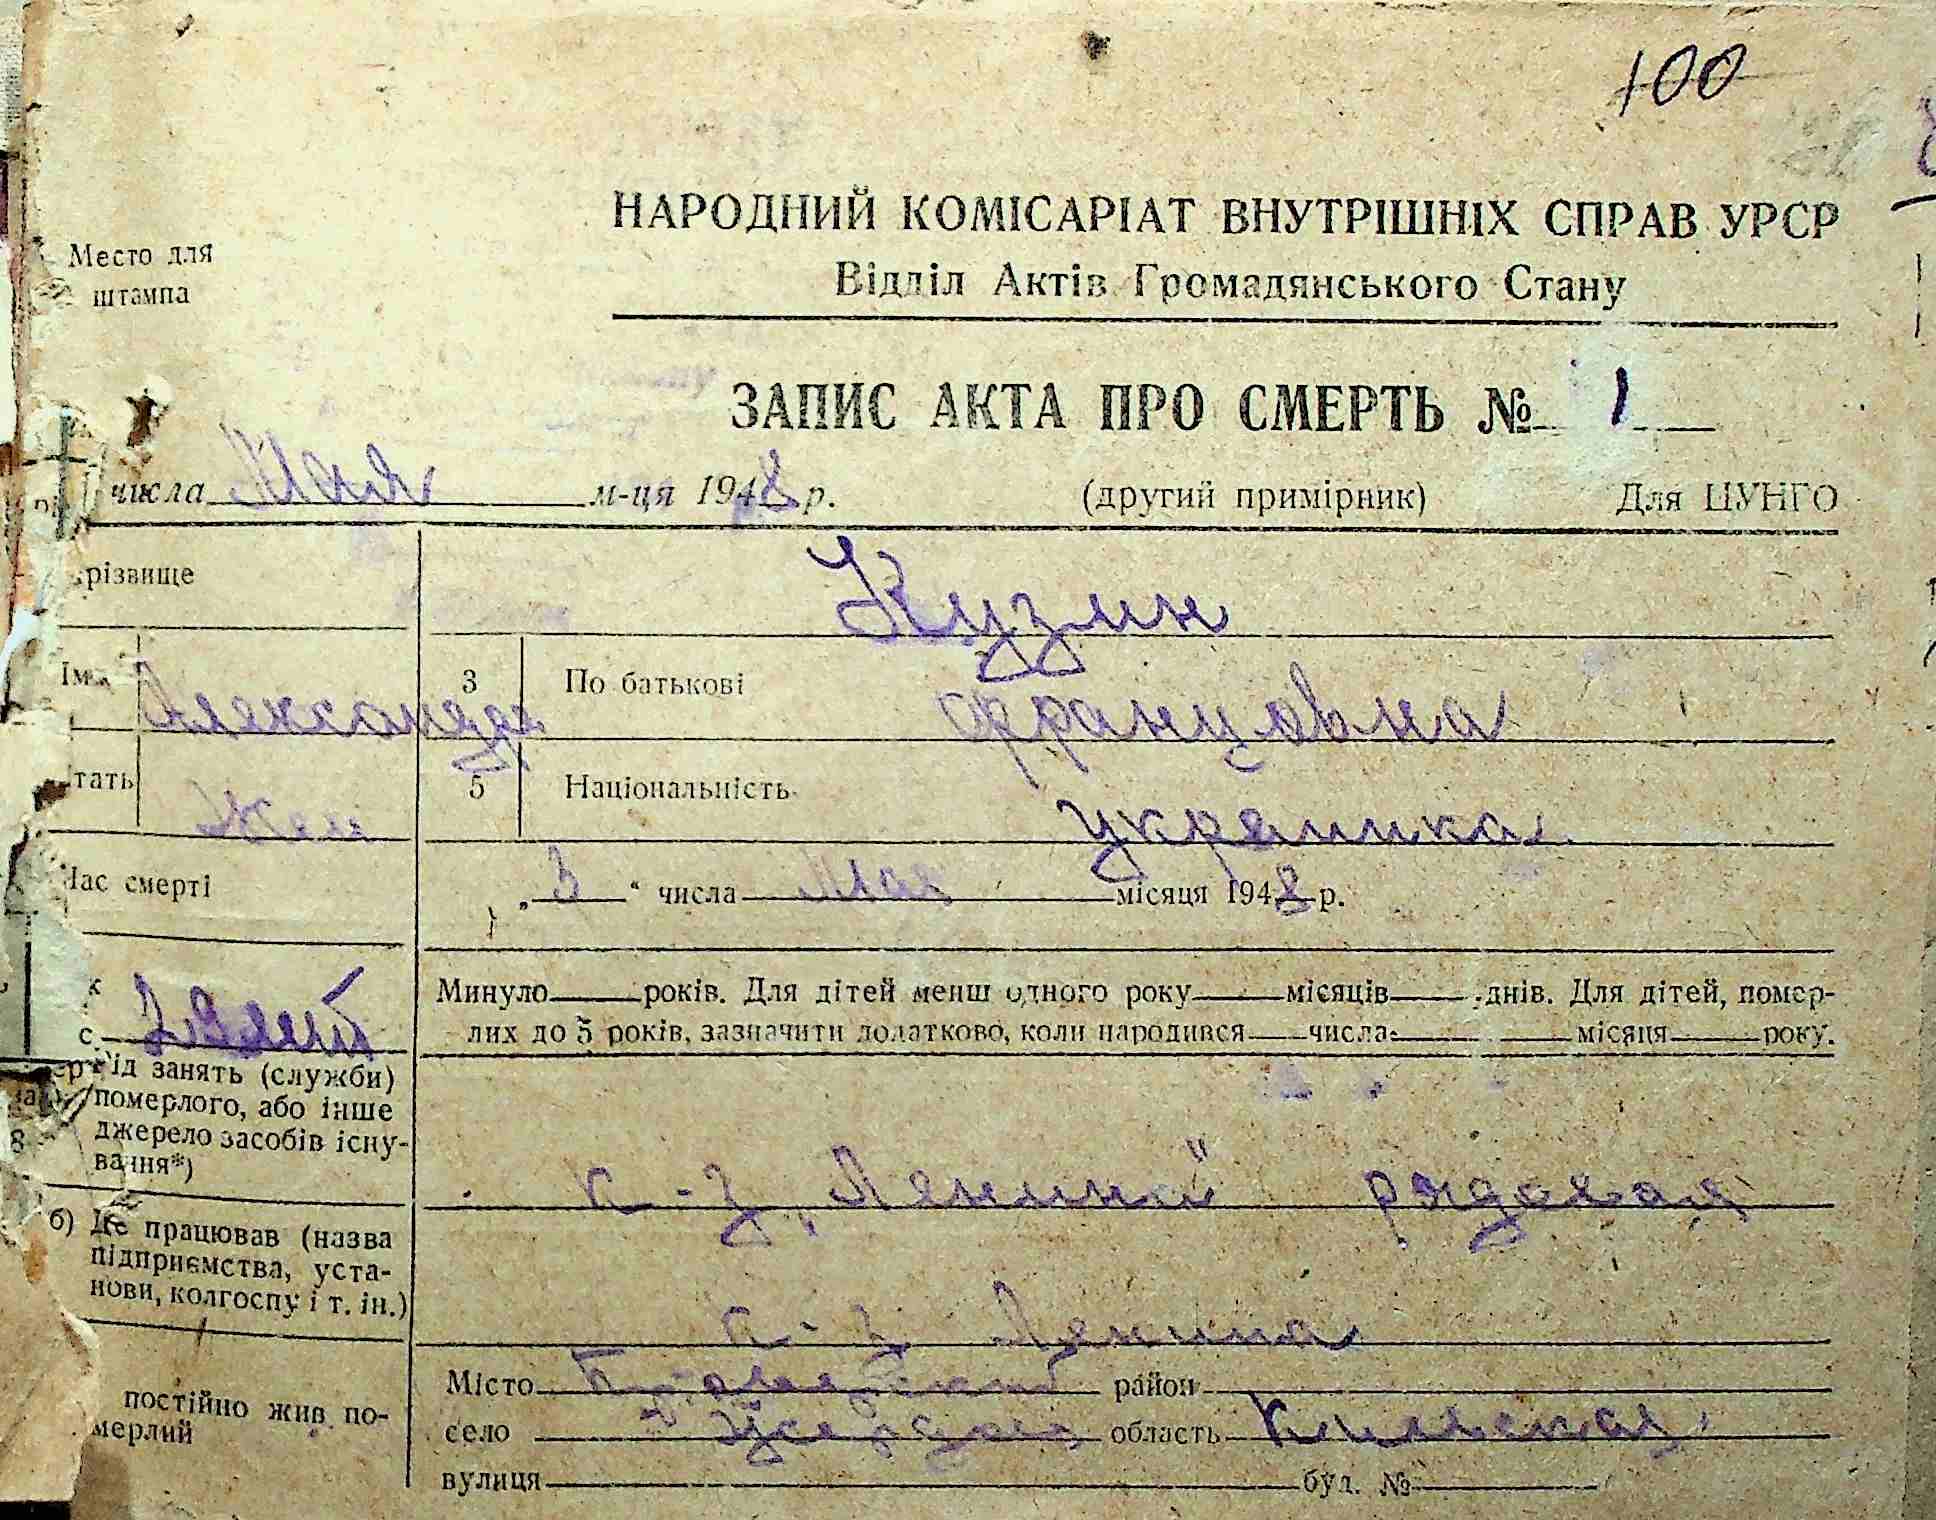 100
Место для
штампа
НАРОДНИЙ КОМІСАРІАТ ВНУТРІШНІХ СПРАВ УРСР
Відділ Актів Громадянського Стану
ЗАПИС АКТА ПРО СМЕРТЬ № 1
числа Мая м-ця 1948 р. (другий примірник) Для ЦУНГО
різвище Кузмн
Ім'я Александра 3 По батькові Францовна
тать жен 5 Національність украинка
Час смерті „3“ числа Мая місяця 1948 р.
Минуло років. Для дітей менш одного року місяців днів. Для дітей, помер-
лих до 5 років, зазначити додатково, коли народився числа місяця року.
ід занять (служби)
померлого, або інше
джерело засобів існу-
вання*)
к-з „Ленина" рядовая
б) Де працював (назва
підприємства, уста-
нови, колгоспу і т. ін.)
к-з Ленина
постійно жив по-
мерлий
Місто район
село область Киевская
вулиця буд. №